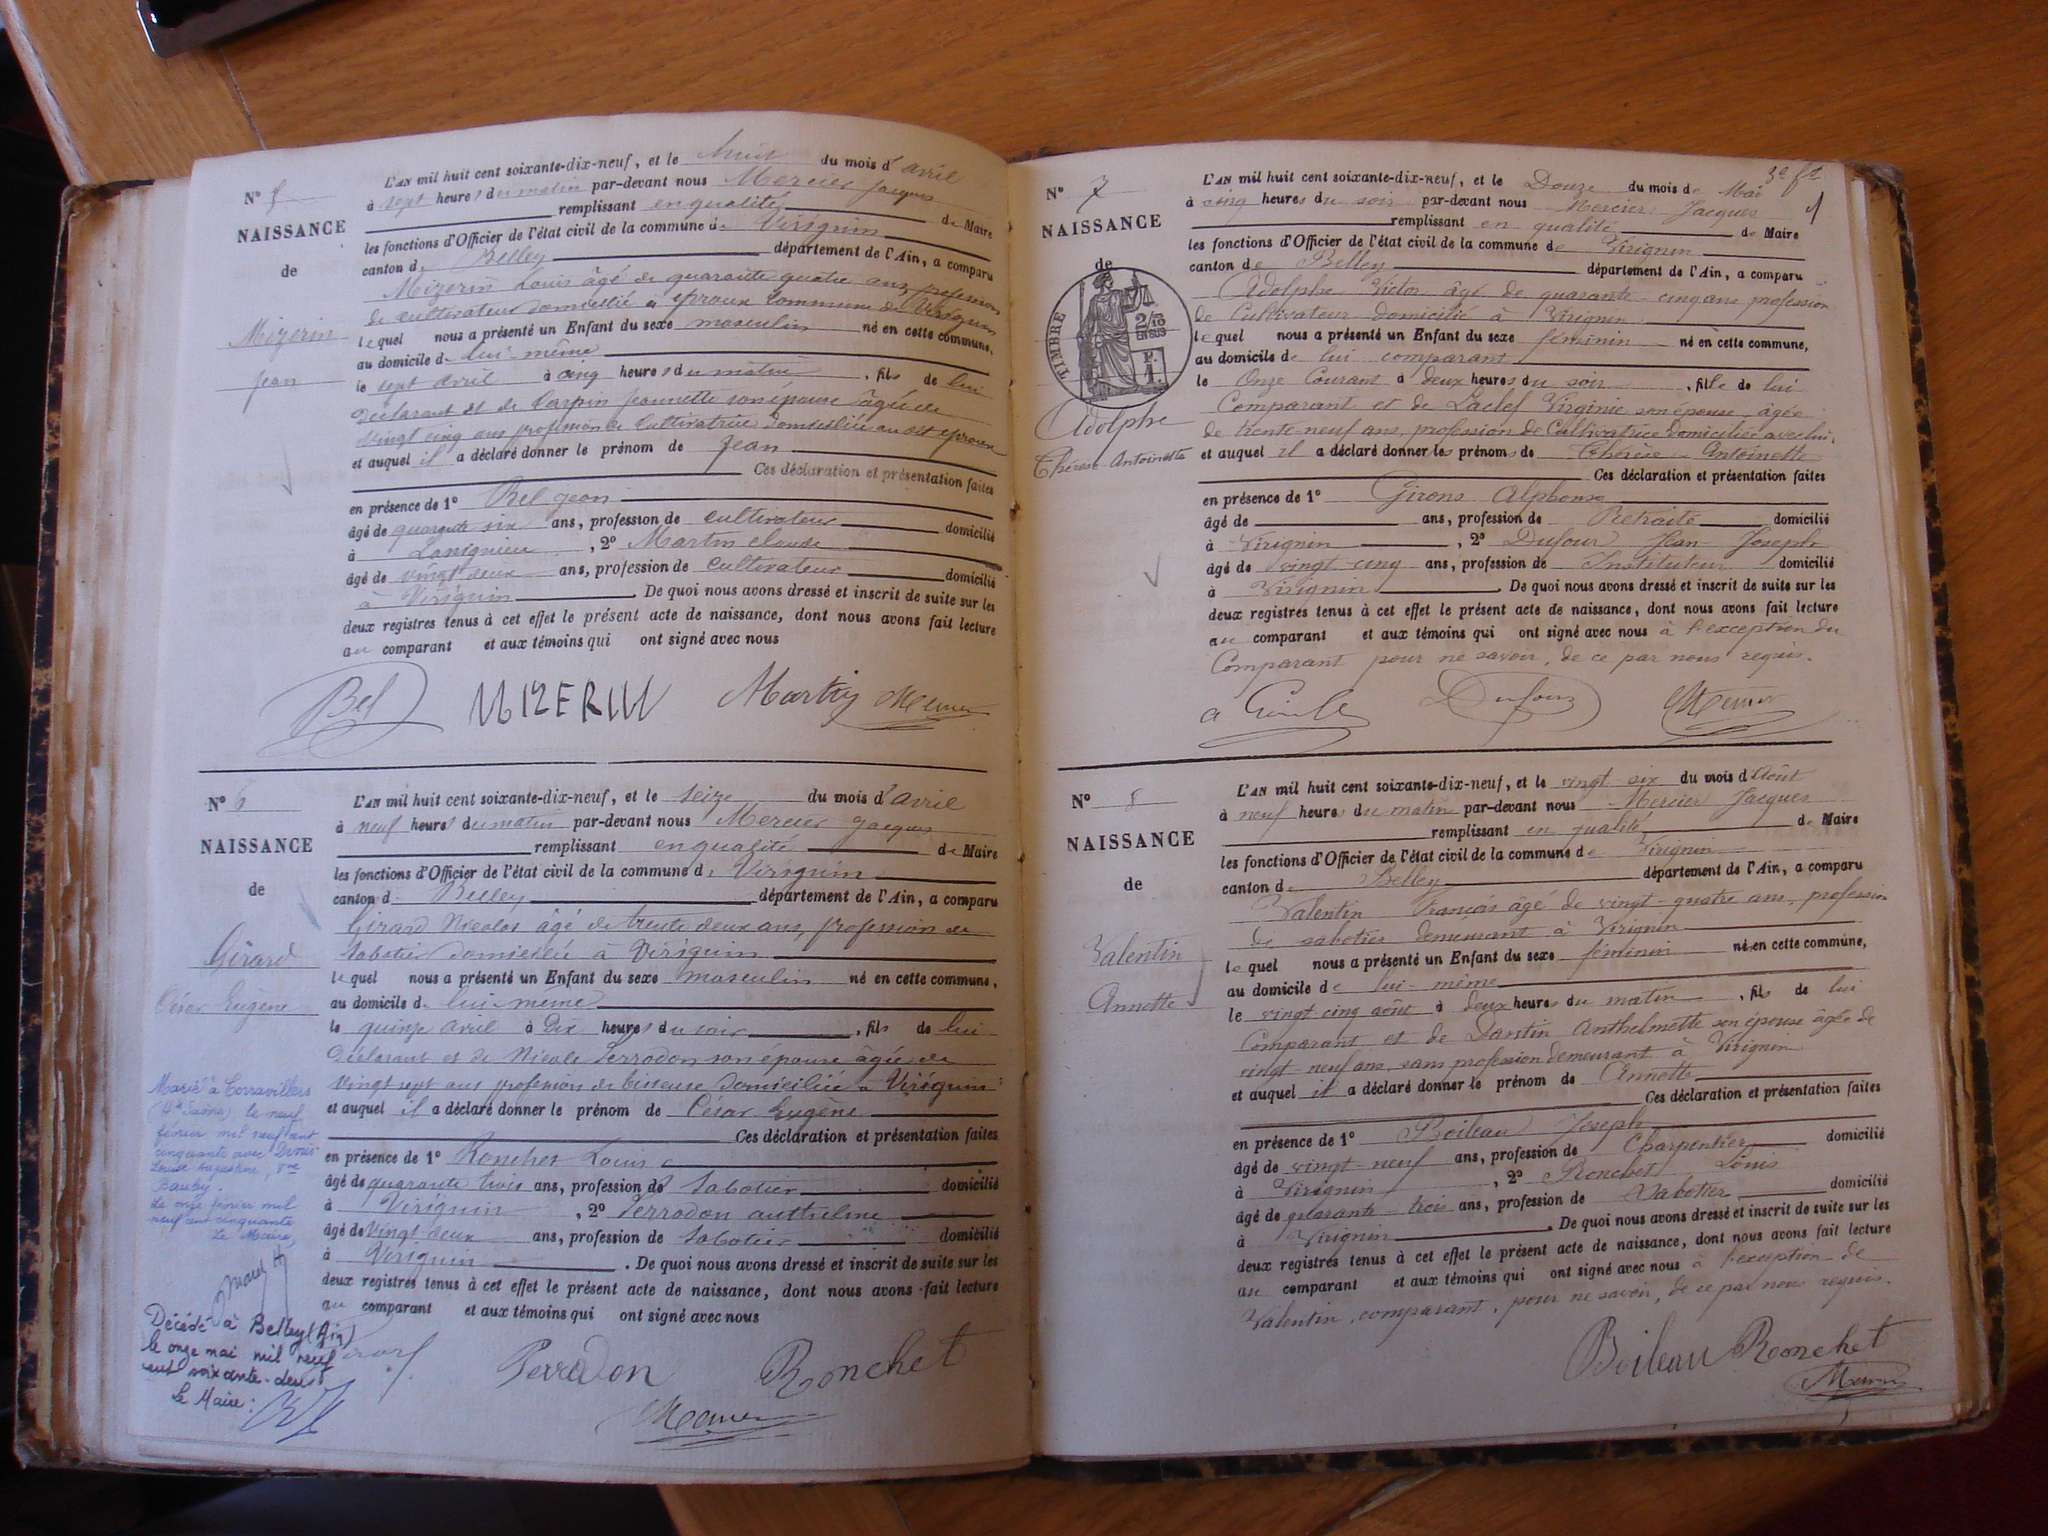 N° 5
NAISSANCE
de
Mizerin
Jean
L'AN mil huit cent soixante-dix-neuf, et le huit du mois d'avril
à sept heures du matin par-devant nous Mercier Jacques
remplissant en qualité de Maire
les fonctions d'Officier de l'état civil de la commune de Virignin
canton de Belley département de l'Ain, a comparu
Mizerin Louis âgé de quarante quatre ans, profession
de cultivateur domicilié à commune de Virignin
lequel nous a présenté un Enfant du sexe masculin né en cette commune,
au domicile de lui-même
le sept avril à cinq heures du matin, fils de lui
déclarant et de Carpin Jeannette son épouse âgée de
vingt cinq ans profession de Cultivatrice domiciliée au dit
et auquel il a déclaré donner le prénom de Jean
Ces déclaration et présentation faites
en présence de 1° Bel
âgé de quarante six ans, profession de cultivateur domicilié
à , 2° Martin Claude
âgé de vingt deux ans, profession de cultivateur domicilié
à Virignin. De quoi nous avons dressé et inscrit de suite sur les
deux registres tenus à cet effet le présent acte de naissance, dont nous avons fait lecture
au comparant et aux témoins qui ont signé avec nous
Bel MIZERIN Martin Mercier
N° 6
NAISSANCE
de
Girard
César Eugène
L'AN mil huit cent soixante-dix-neuf, et le seize du mois d'avril
à neuf heures du matin par-devant nous Mercier Jacques
remplissant en qualité de Maire
les fonctions d'Officier de l'état civil de la commune de Virignin
canton de Belley département de l'Ain, a comparu
Girard Nicolas âgé de trente deux ans, profession de
sabotier domicilié à Virignin
lequel nous a présenté un Enfant du sexe masculin né en cette commune,
au domicile de lui-même
le quinze avril à Dix heures du soir, fils de lui
déclarant et de Nicole Perrodon son épouse âgée de
vingt sept ans profession de domiciliée à Virignin
et auquel il a déclaré donner le prénom de César Eugène
Ces déclaration et présentation faites
en présence de 1° Ronchet Louis
âgé de quarante trois ans, profession de Sabotier domicilié
à Virignin, 2° Perrodon anthelme
âgé de vingt deux ans, profession de sabotier domicilié
à Virignin. De quoi nous avons dressé et inscrit de suite sur les
deux registres tenus à cet effet le présent acte de naissance, dont nous avons fait lecture
au comparant et aux témoins qui ont signé avec nous
Marié à Corravillers
(Hte Saône) le neuf
février mil neuf cent
cinquante avec
Louise Augustine, vve
Le onze février mil
neuf cent cinquante
Le Maire,
Décédé à Belley (Ain)
le onze mai mil neuf
cent soixante-deux
Le Maire :
Perradon Ronchet
Mercier
3e ft
N° 7
NAISSANCE
de
TIMBRE
2/10
EN SUS
F.
1.
Adolphe
Thérèse Antoinette
L'AN mil huit cent soixante-dix-neuf, et le Douze du mois de Mai
à cinq heures du soir par-devant nous Mercier Jacques
remplissant en qualité de Maire
les fonctions d'Officier de l'état civil de la commune de Virignin
canton de Belley département de l'Ain, a comparu
Adolphe Victor âgé de quarante-cinq ans, profession
de Cultivateur domicilié à Virignin
lequel nous a présenté un Enfant du sexe féminin né en cette commune,
au domicile de lui comparant
le Onze Courant à deux heures du soir, fille de lui
Comparant et de Laclef Virginie son épouse, âgée
de trente-neuf ans, profession de Cultivatrice Domiciliée avec lui,
et auquel il a déclaré donner les prénoms de Thérèse - Antoinette
Ces déclaration et présentation faites
en présence de 1° Alphonse
âgé de ans, profession de Retraité domicilié
à Virignin, 2° Dufour Jean-Joseph
âgé de vingt-cinq ans, profession de Instituteur domicilié
à Virignin. De quoi nous avons dressé et inscrit de suite sur les
deux registres tenus à cet effet le présent acte de naissance, dont nous avons fait lecture
au comparant et aux témoins qui ont signé avec nous à l'exception du
Comparant pour ne savoir, de ce par nous requis.
Dufour Mercier
N° 8
NAISSANCE
de
Valentin
Annette
L'AN mil huit cent soixante-dix-neuf, et le vingt-six du mois d'Août
à neuf heures du matin par-devant nous Mercier Jacques
remplissant en qualité de Maire
les fonctions d'Officier de l'état civil de la commune de Virignin
canton de Belley département de l'Ain, a comparu
Valentin François âgé de vingt-quatre ans, profession
de sabotier demeurant à Virignin
lequel nous a présenté un Enfant du sexe féminin né en cette commune,
au domicile de lui-même
le vingt cinq août à deux heures du matin, fils de lui
Comparant et de Dantin Anthelmette son épouse âgée de
vingt-neuf ans, sans profession demeurant à Virignin
et auquel il a déclaré donner le prénom de Annette
Ces déclaration et présentation faites
en présence de 1° Boileau Joseph
âgé de vingt-neuf ans, profession de Charpentier domicilié
à Virignin, 2° Ronchet Louis
âgé de quarante-trois ans, profession de Sabotier domicilié
à Virignin. De quoi nous avons dressé et inscrit de suite sur les
deux registres tenus à cet effet le présent acte de naissance, dont nous avons fait lecture
au comparant et aux témoins qui ont signé avec nous à l'exception de
Valentin, comparant, pour ne savoir, de ce par nous requis.
Boileau Ronchet
Mercier